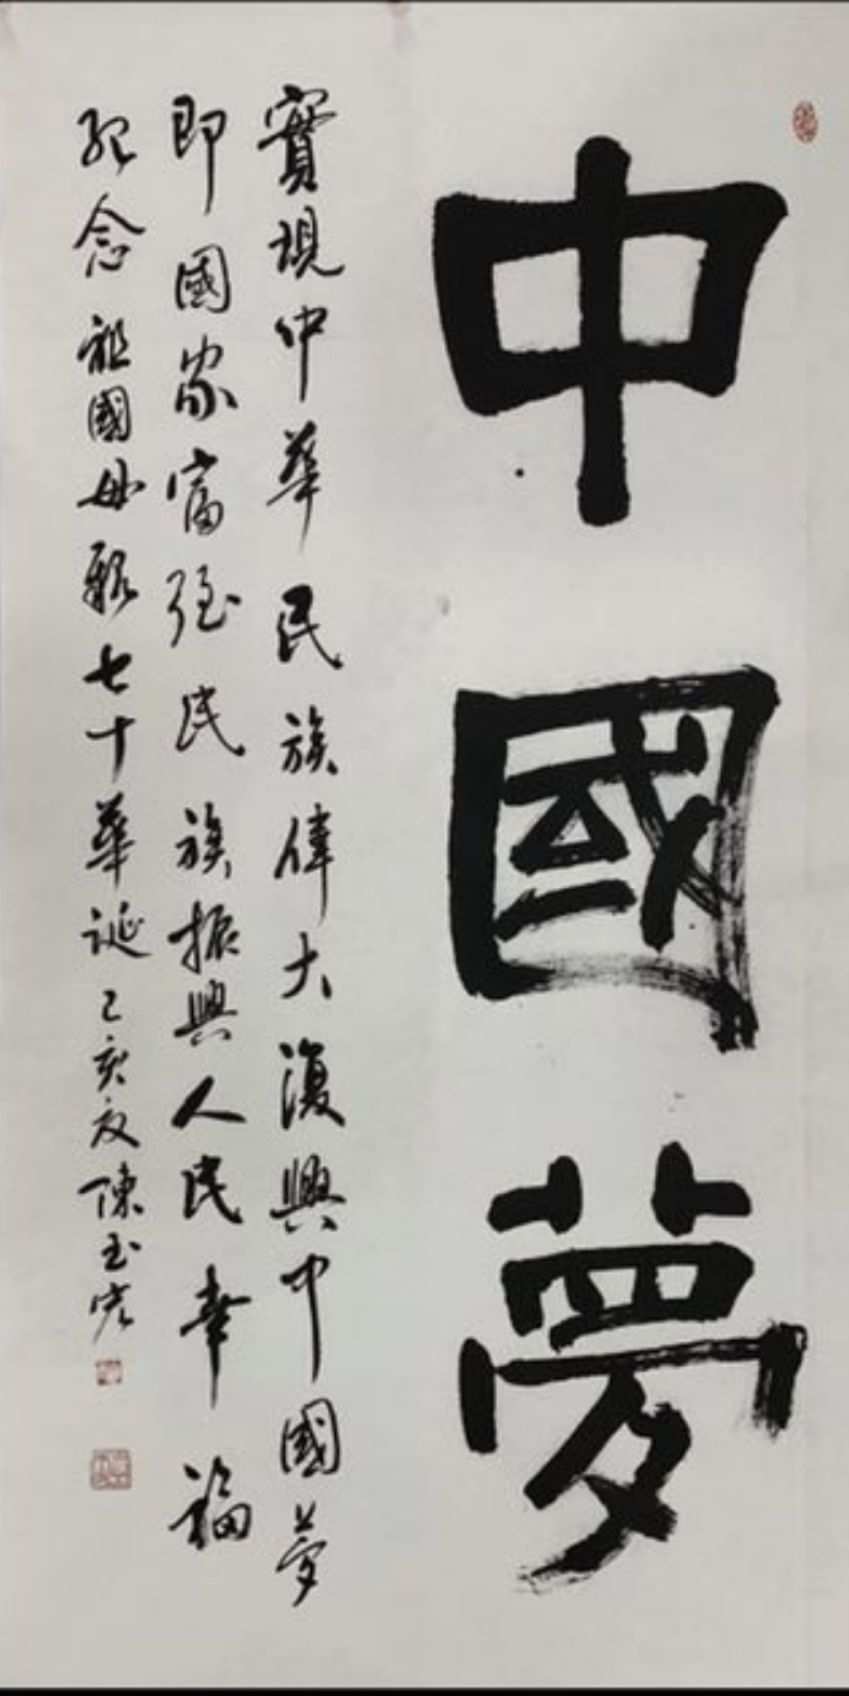 中國夢
實現中華民族偉大復興中國夢
即國家富强民族振興人民幸福
紀念祖國母親七十華誕己亥夏陳玉宏